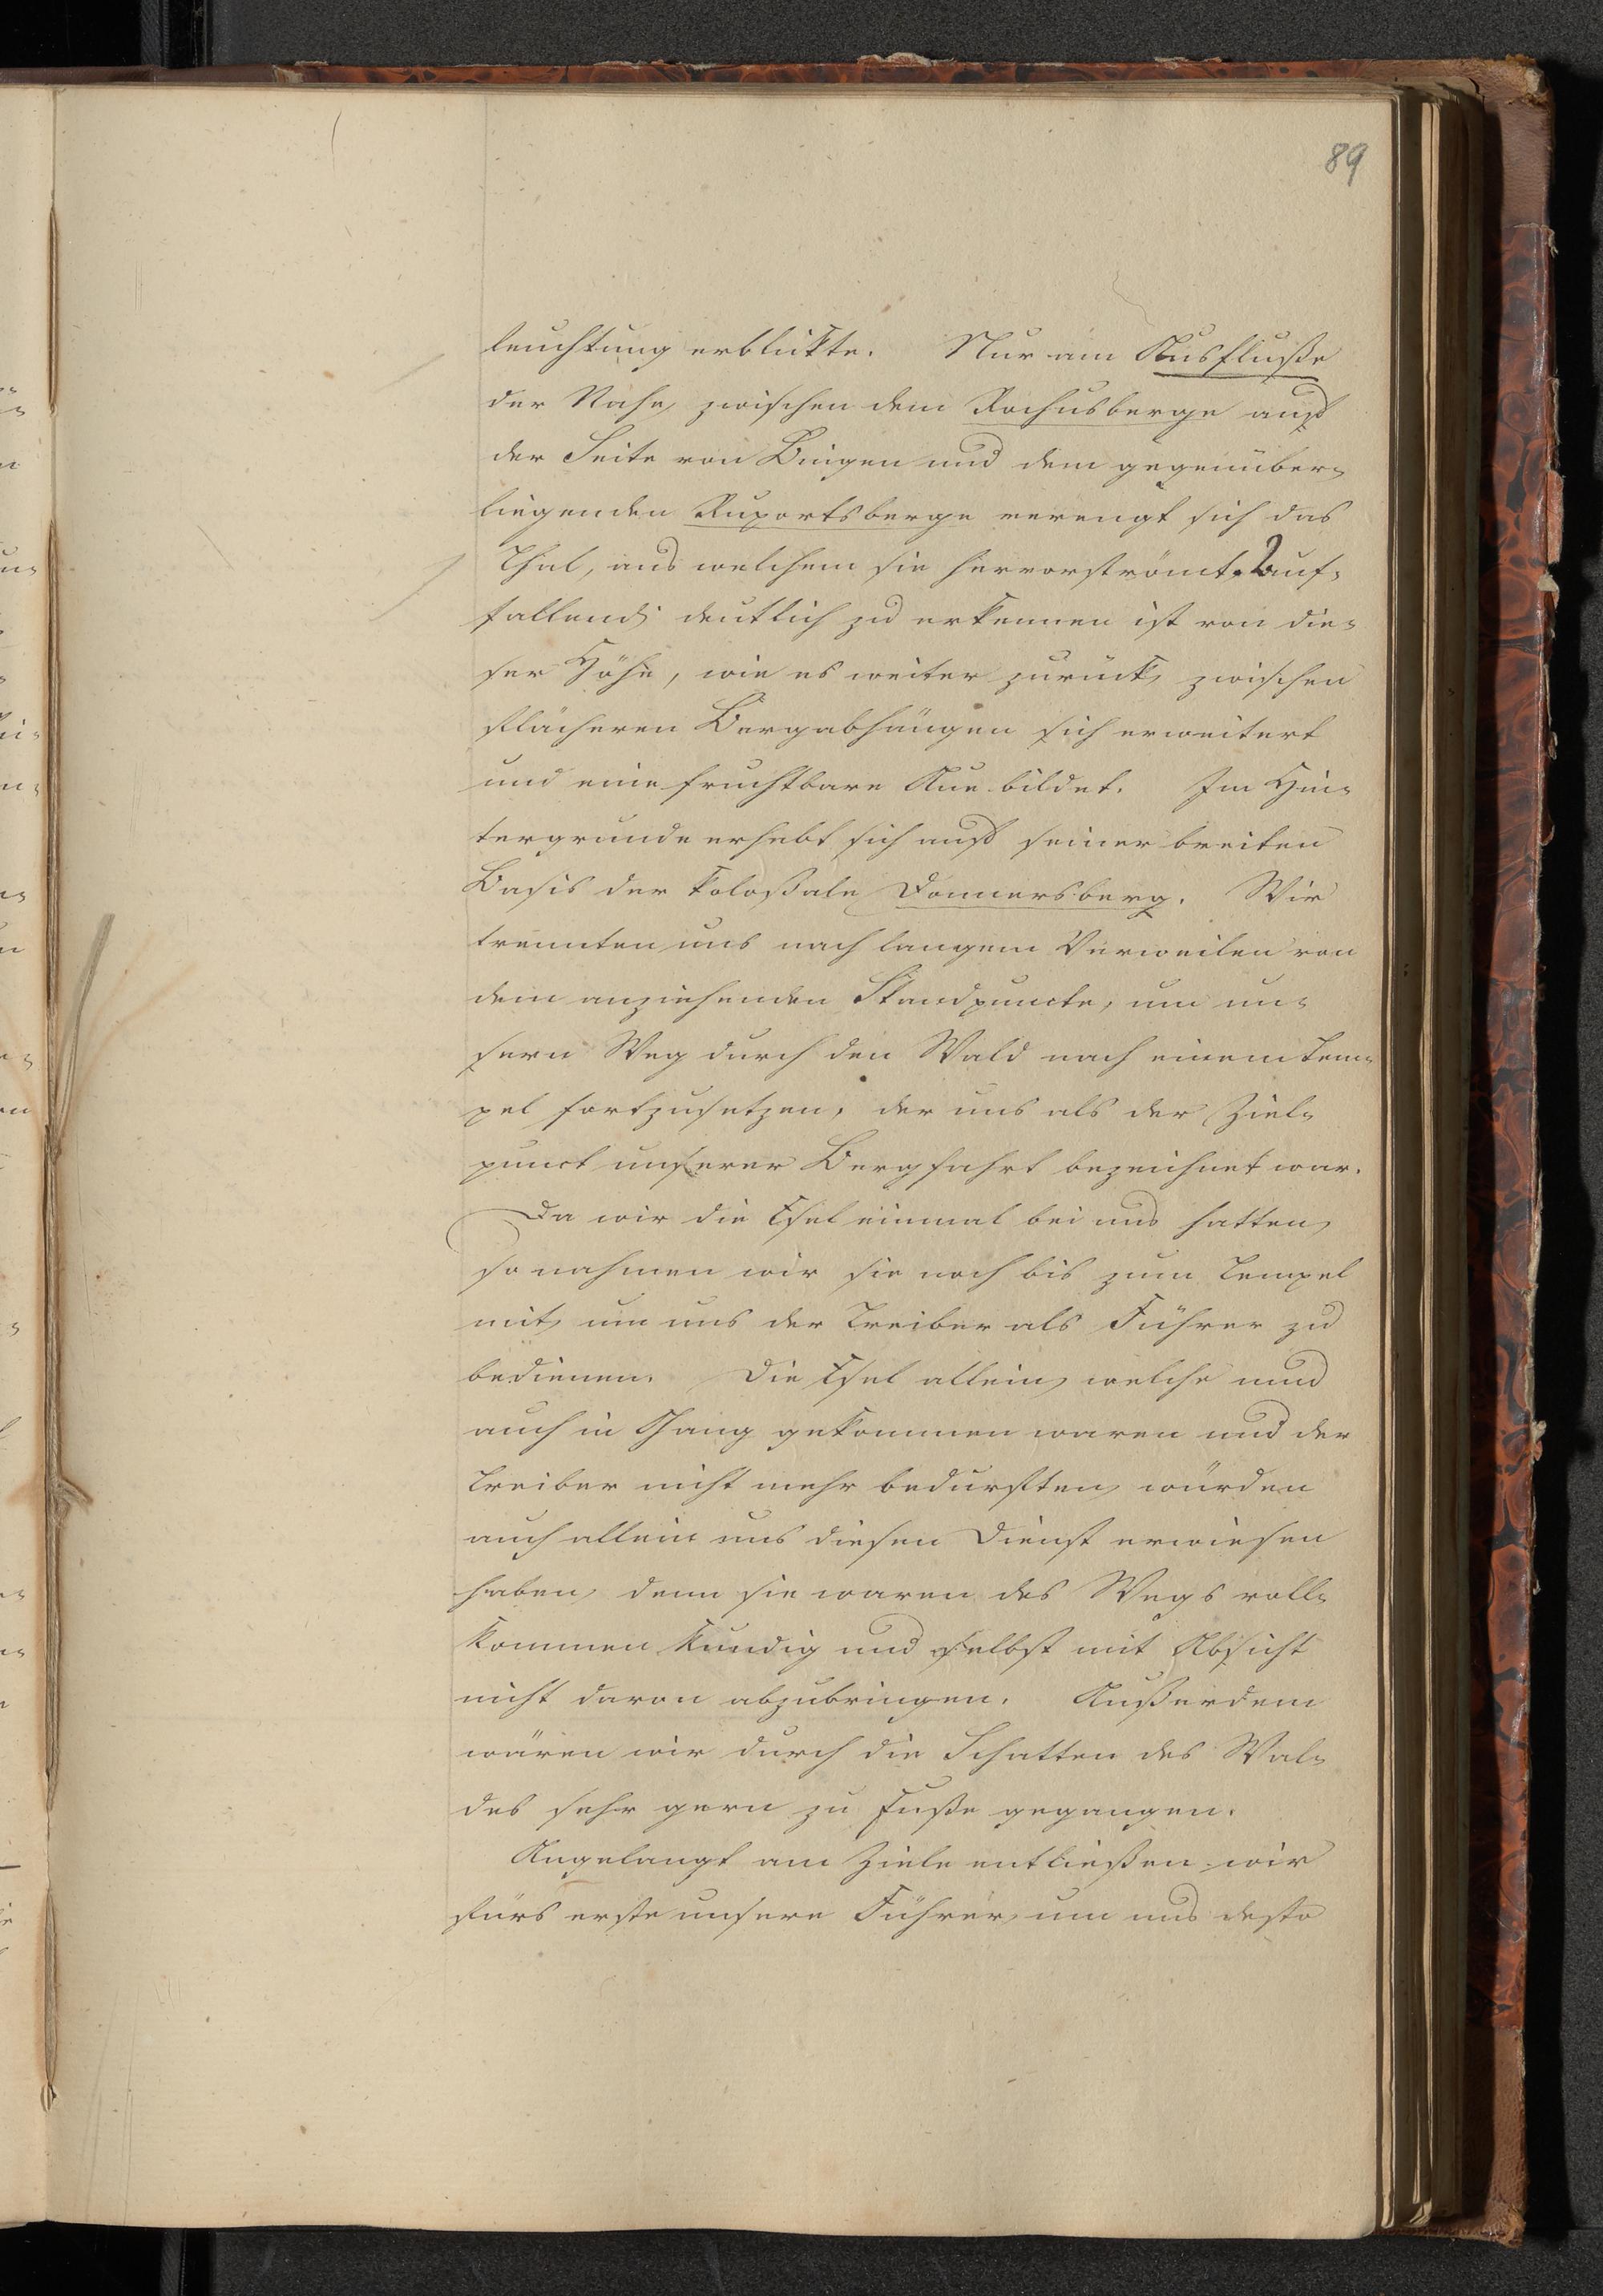 89
leuchtung erblickte. Nur am Ausfluße
der Nahe, zwischen dem Rochusberge auf
der Seite von Bingen und dem gegenüber-
liegenden Ruportsberge verengt sich das
Thal, aus welchem sie hervorströmt. auf-
fallend deutlich zu erkennen ist von die-
ser Höhe, wie es weiter zurück, zwischen
flächeren Bergabhängen sich erweitert
und eine fruchtbare Aue bildet. Im Hin-
tergrunde erhebt sich auf seiner breiten
Basis der koloßale Donnersberg. Wir
trennten uns nach langem Verweilen von
dem anziehenden Standpuncte, um un-
sern Weg durch den Wald nach einem Tem-
pel fortzusetzen, der uns als der Ziel-
punct unserer Bergfahrt bezeichnet war.
Da wir die Esel einmal bei uns hatten,
so nahmen wir sie noch bis zum Tempel
mit, um uns der Treiber als Führer zu
bedienen. Die Esel allein, welche nun
auch in Gang gekommen waren und der
Treiber nicht mehr bedurften, würden
auch allein uns diesen Dienst erwiesen
haben, denn sie waren des Wegs voll-
kommen kundig und selbst mit Absicht
nicht davon abzubringen. Außerdem
wären wir durch die Schatten des Wal-
des sehr gern zu Fuße gegangen.
Angelangt am Ziele entließen wir
fürs erste unsere Führer, um uns desto